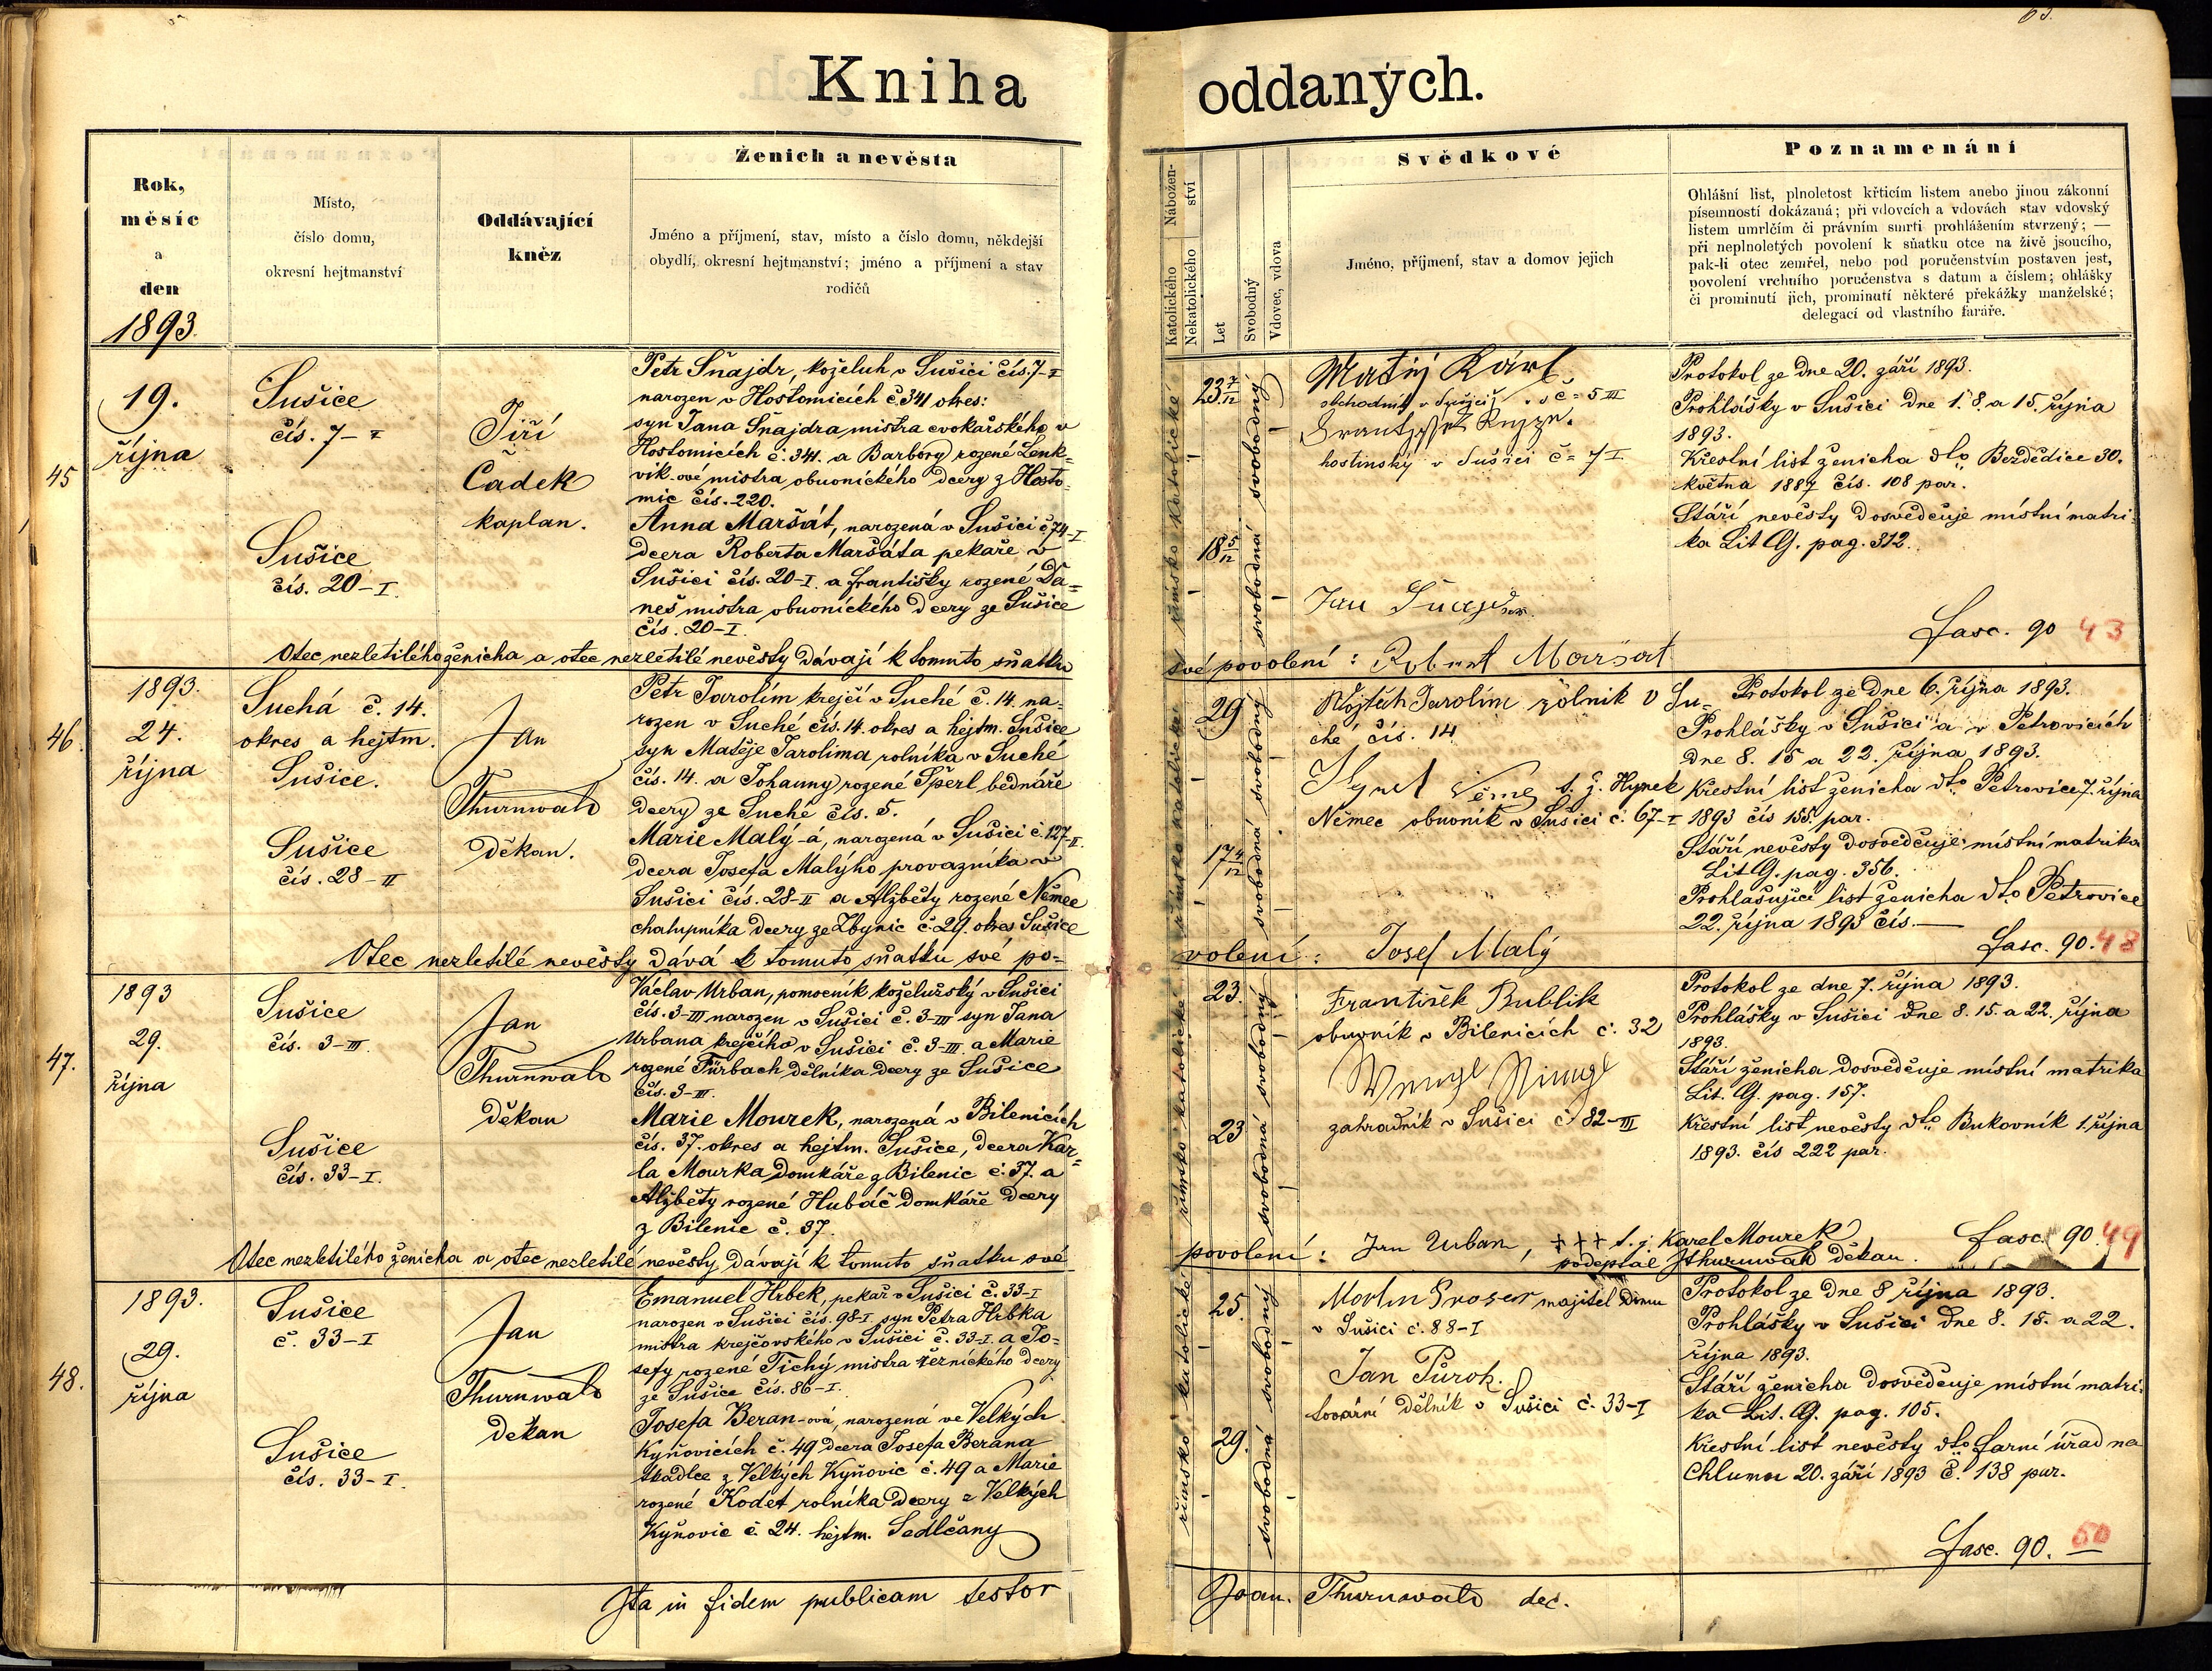 Kniha oddaných.
Rok,
měsíc
a
den
1893.
Místo,
číslo domu,
okresní hejtmanství
Oddávající
kněz
Ženich a nevěsta
Jméno a příjmení, stav, místo a číslo domu, někdejší
obydlí, okresní hejtmanství; jméno a příjmení a stav
rodičů
Nábožen-
ství
Katolického
Nekatolického
Let
Svobodný
Vdovec, vdova
Svědkové
Jméno, příjmení, stav a domov jejich
Poznamenání
Ohlášní list, plnoletost křticím listem anebo jinou zákonní
písemností dokázaná; při vdovcích a vdovách stav vdovský
listem umrlčím či právním smrti prohlášením stvrzený; —
při neplnoletých povolení k sňatku otce na živě jsoucího,
pak-li otec zemřel, nebo pod poručenstvím postaven jest,
povolení vrchního poručenstva s datum a číslem; ohlášky
či prominutí jich, prominutí některé překážky manželské;
delegací od vlastního faráře.
45
19.
října
Sušice
čís. 7-I
Sušice
čís. 20-I.
Jiří
Čadek
kaplan.
Petr Šnajdr, koželuh v Sušici čís. 7-I
narozen v Hostomicích č. 341 okres:
syn Jana Šnajdra mistra cvokařského v
Hostomicích č. 341. a Barbory rozené Lenk-
vik-ové mistra obuvnického dcery z Hosto-
mic čís. 220.
Anna Maršát, narozená v Sušici č 74-I
dcera Roberta Maršáta pekaře v
Sušici čís. 20-I. a Františky rozené Da-
neš mistra obuvnického dcery ze Sušice
čís. 20-I.
římsko katolické
23 7/12
18 5/12
svobodný
svobodná
Matěj Kárl
obchodník v Sušici č= 5 III
hostinský v Sušici č= 7 I
Jan Šnajdr
Protokol ze dne 20. září 1893.
Prohlášky v Sušici dne 1. 8. a 15. října
1893.
Křestní list ženicha dto Bezdědice 30.
května 1887 čís. 108 par.
Stáří nevěsty dosvědčuje místní matri-
ka Lit G. pag. 312.
fasc. 90 43
Otec nezletilého ženicha a otec nezletilé nevěsty dávají k tomuto sňatku
své povolení: Robert Maršat
46.
1893.
24.
října
Suchá č. 14.
okres a hejtm.
Sušice.
Sušice
čís. 28-II
Jan
Thurnwald
děkan.
Petr Jarolím krejčí v Suché č. 14. na-
rozen v Suché čís. 14. okres a hejtm. Sušice
syn Matěje Jarolíma rolníka v Suché
čís. 14. a Johanny rozené Šperl bednáře
dcery ze Suché čís. 5.
Marie Malý-á, narozená v Sušici č. 127-II.
dcera Josefa Malýho provazníka v
Sušici čís. 28-II a Alžběty rozené Němec
chalupníka dcery ze Zbynic č. 29. okres Sušice
29
17 4/12
svobodný
svobodná
Vojtěch Jarolím rolník v Su-
ché čís. 14
t. j. Hynek
Němec obuvník v Sušici č. 67-I
Protokol ze dne 6. října 1893.
Prohlášky v Sušici a v Petrovicích
dne 8. 15 a 22. října 1893.
Křestní list ženicha dto Petrovice 7. října
1893 čís 155. par.
Stáří nevěsty dosvědčuje místní matrika
Lit G. pag. 356.
Prohlašující list ženicha dto Petrovice
22. října 1893 čís. —
fasc. 90. 48
Otec nezletilé nevěsty dává k tomuto sňatku své po-
volení: Josef Malý
47.
1893
29.
října
Sušice
čís. 3-III.
Sušice
čís. 33-I.
Jan
Thurnwald
děkan
Václav Urban, pomocník koželužský v Sušici
čís. 3-III narozen v Sušici č. 3-III syn Jana
Urbana krejčího v Sušici č. 3-III. a Marie
rozené Fürbach dělníka dcery ze Sušice
čís. 3-III.
Marie Mourek, narozená v Bilenicích
čís. 37. okres a hejtm. Sušice, dcera Kar-
la Mourka domkáře z Bilenic č. 37. a
Alžběty rozené Hubáč domkáře dcery
z Bilenic č. 37.
římsko katolické
23.
23
svobodný
svobodná
František Bublik
obuvník v Bilenicích č. 32
zahradník v Sušici č 82-III
Protokol ze dne 7. října 1893.
Prohlášky v Sušici dne 8. 15. a 22. října
1893.
Stáří ženicha dosvědčuje místní matrika
Lit. G. pag. 157.
Křestní list nevěsty dto Bukovník 1. října
1893. čís 222 par.
fasc. 90. 49
Otec nezletilého ženicha a otec nezletilé nevěsty dávají k tomuto sňatku své
povolení: Jan Urban, +++ t. j. Karel Mourek
podepsal JThurnwald děkan.
48.
1893.
29.
října
Sušice
č. 33-I
Sušice
čís. 33-I.
Jan
Thurnwald
děkan
Emanuel Hrbek, pekař v Sušici č. 33-I
narozen v Sušici čís. 98-I. syn Petra Hrbka
mistra krejčovského v Sušici č. 33-I. a Jo-
sefy rozené Tichý mistra řeznického dcery
ze Sušice čís. 86-I.
Josefa Beran-ová, narozená ve Velkých
Kyňovicích č. 49 dcera Josefa Berana
tkadlce z Velkých Kyňovic č. 49 a Marie
rozené Kodet rolníka dcery z Velkých
Kyňovic č. 24. hejtm. Sedlčany
římsko katolické
25.
29.
svobodný
svobodná
majitel domu
v Sušici č. 88-I
Jan Půrok.
tovární dělník v Sušici č. 33-I
Protokol ze dne 8 října 1893.
Prohlášky v Sušici dne 8. 15. a 22.
října 1893.
Stáří ženicha dosvědčuje místní matri-
ka Lit. G. pag. 105.
Křestní list nevěsty dto farní úřad na
Chlumu 20. září 1893 č. 138 par.
fasc. 90. 50
Ita in fidem publicam testor
Joan. Thurnwald dec.